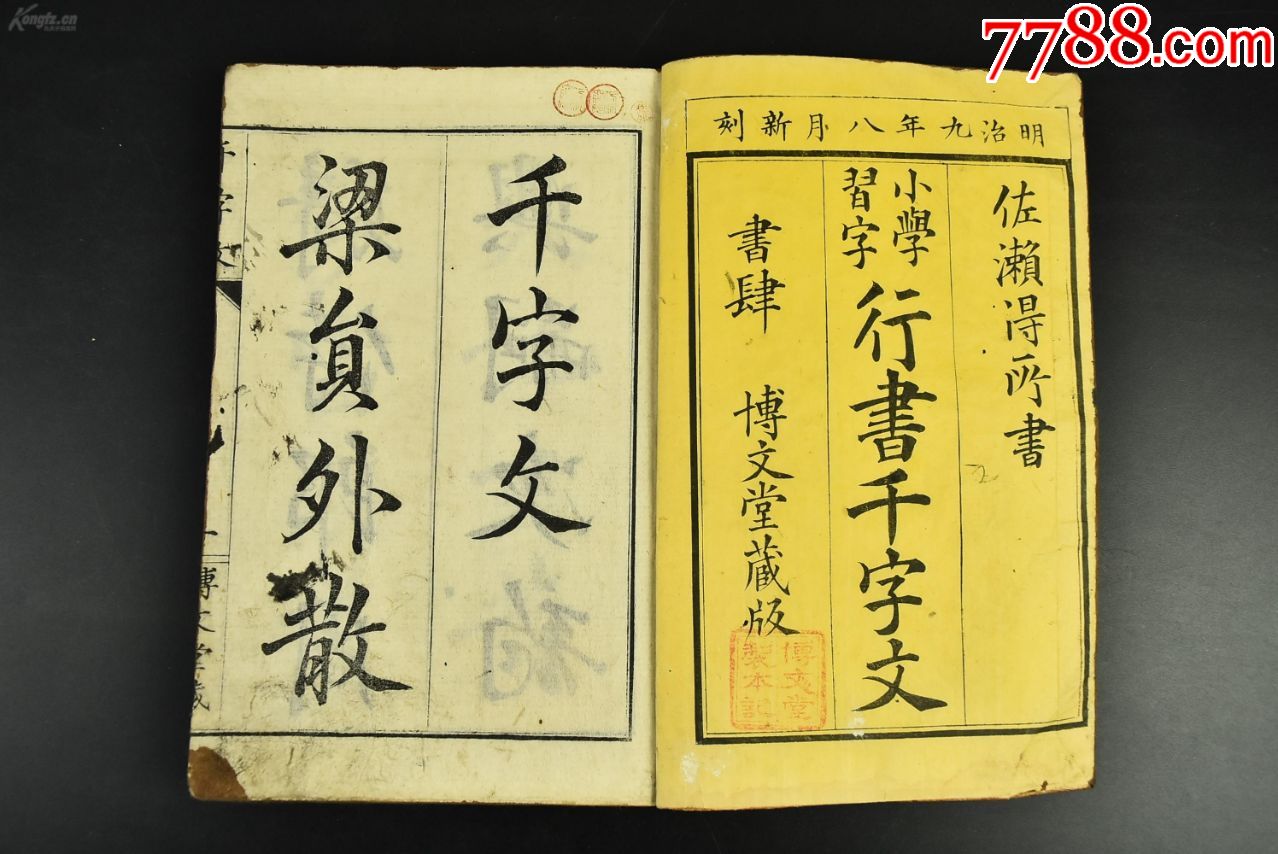 Kongfz.cn
7788.com
明治九年八月新刻
佐瀬得所書
小學
習字
行書千字文
書肆 博文堂蔵版
博文堂
製本記
千字文
梁貟外散
千字文
一
博文堂蔵